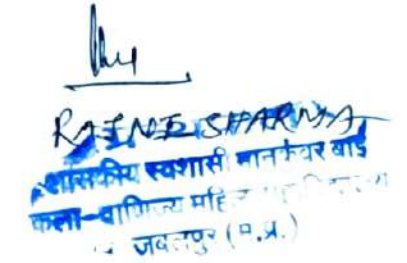 RAJNI SHARMA
शासकीय स्वशासी मानकुंवर बाई
कला-वाणिज्य
जबलपुर (म.प्र.)